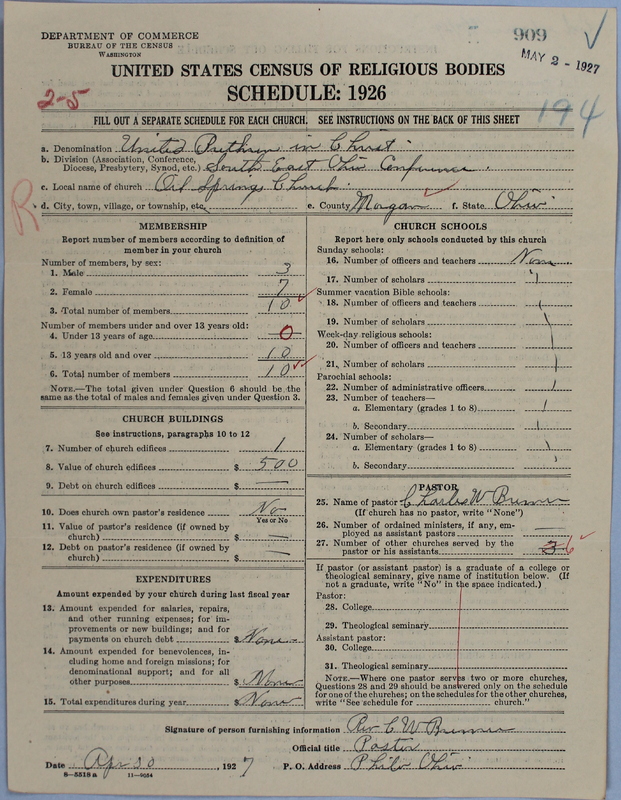 DEPARTMENT OF COMMERCE
BUREAU OF THE CENSUS
WASHINGTON
909
MAY 2 - 1927
UNITED STATES CENSUS OF RELIGIOUS BODIES
SCHEDULE: 1926
2-5
194
FILL OUT A SEPARATE SCHEDULE FOR EACH CHURCH. SEE INSTRUCTIONS ON THE BACK OF THIS SHEET
a. Denomination United Brethren in Christ.
b. Division (Association, Conference,
Diocese, Presbytery, Synod, etc.) South East Ohio Conference.
c. Local name of church Oil Springs Church.
R
d. City, town, village, or township, etc. e. County Morgan f. State Ohio
MEMBERSHIP
Report number of members according to definition of
member in your church
Number of members, by sex:
1. Male 3
2. Female 7
3. Total number of members 10
Number of members under and over 13 years old:
4. Under 13 years of age 0
5. 13 years old and over 10
6. Total number of members 10
NOTE.—The total given under Question 6 should be the
same as the total of males and females given under Question 3.
CHURCH BUILDINGS
See instructions, paragraphs 10 to 12
7. Number of church edifices 1
8. Value of church edifices $ 500
9. Debt on church edifices $ —
10. Does church own pastor's residence No
Yes or No
11. Value of pastor's residence (if owned by
church) $ —
12. Debt on pastor's residence (if owned by
church) $ —
EXPENDITURES
Amount expended by your church during last fiscal year
13. Amount expended for salaries, repairs,
and other running expenses; for im-
provements or new buildings; and for
payments on church debt $ None
14. Amount expended for benevolences, in-
cluding home and foreign missions; for
denominational support; and for all
other purposes $ None
15. Total expenditures during year $ None
CHURCH SCHOOLS
Report here only schools conducted by this church
Sunday schools:
16. Number of officers and teachers None
17. Number of scholars "
Summer vacation Bible schools:
18. Number of officers and teachers
19. Number of scholars
Week-day religious schools:
20. Number of officers and teachers
21. Number of scholars
Parochial schools:
22. Number of administrative officers
23. Number of teachers—
a. Elementary (grades 1 to 8)
b. Secondary
24. Number of scholars—
a. Elementary (grades 1 to 8)
b. Secondary
PASTOR
25. Name of pastor Charles W
(If church has no pastor, write "None")
26. Number of ordained ministers, if any, em-
ployed as assistant pastors —
27. Number of other churches served by the
pastor or his assistants 3 6
If pastor (or assistant pastor) is a graduate of a college or
theological seminary, give name of institution below. (If
not a graduate, write "No" in the space indicated.)
Pastor:
28. College
29. Theological seminary
Assistant pastor:
30. College
31. Theological seminary
NOTE.—Where one pastor serves two or more churches,
Questions 28 and 29 should be answered only on the schedule
for one of the churches; on the schedules for the other churches,
write "See schedule for church."
Signature of person furnishing information Rev C W
Official title Pastor
Date Apr 30, 1927 P. O. Address Philo Ohio
8-5518 a 11-9034